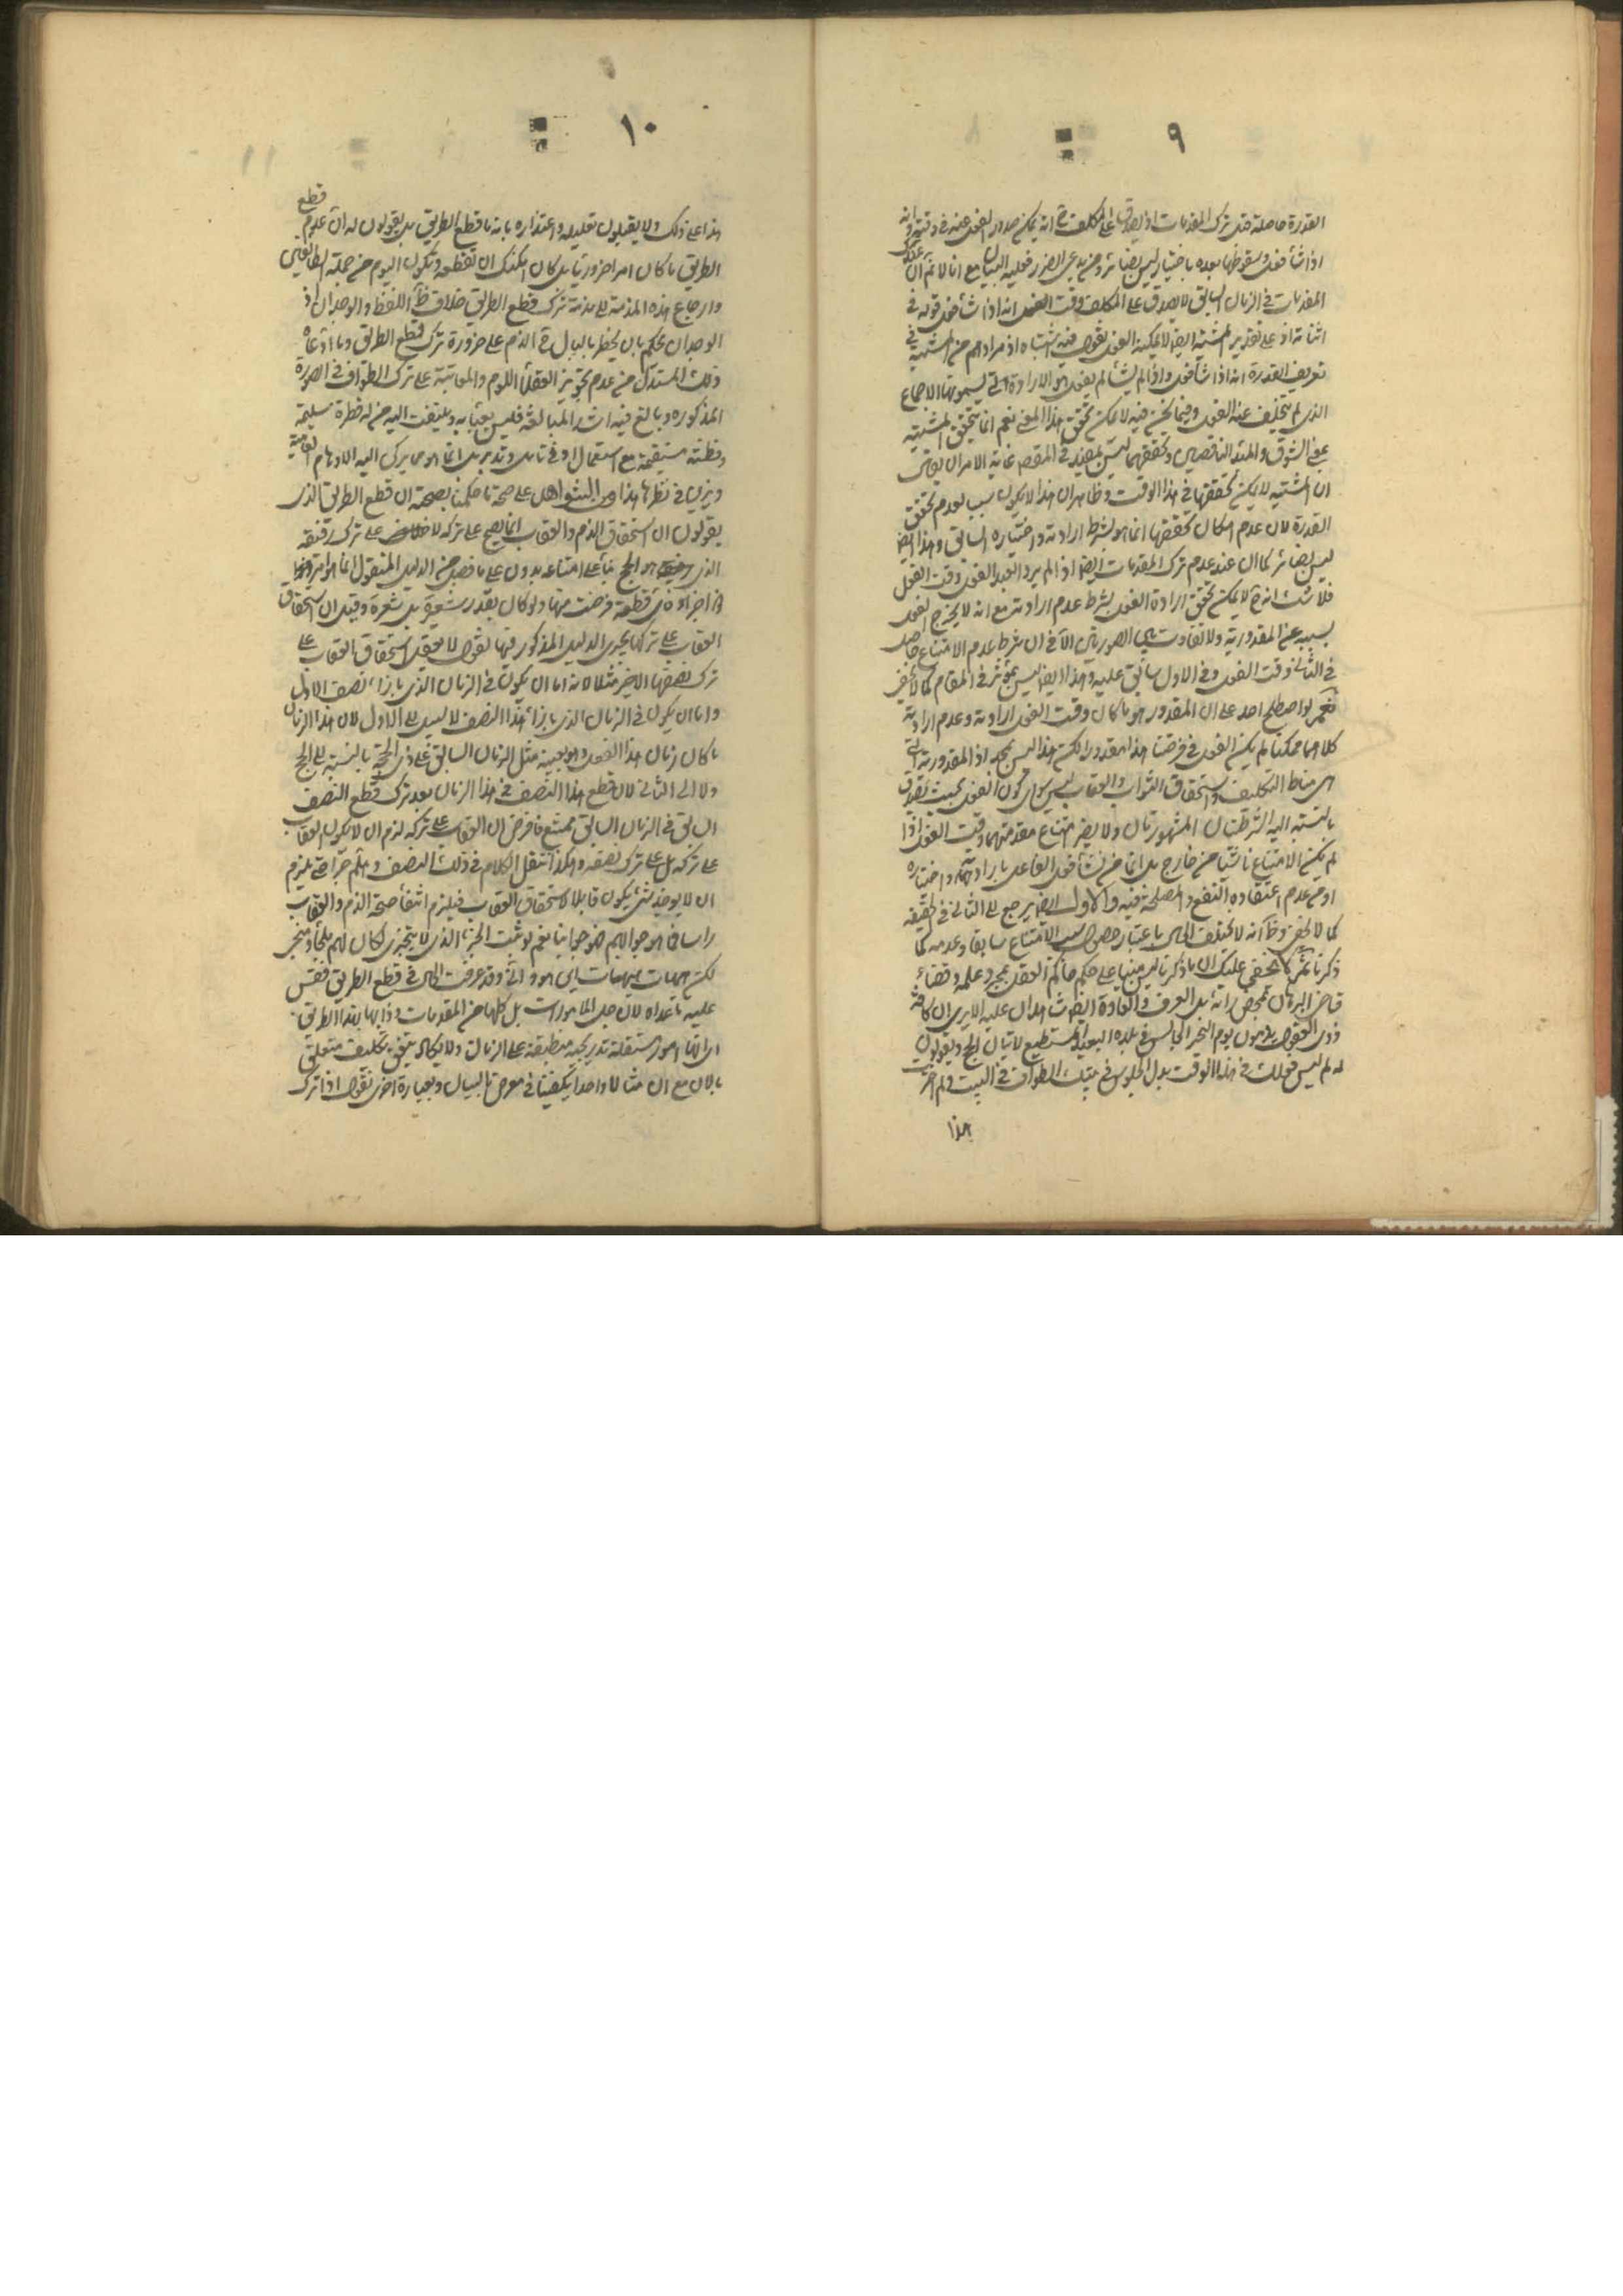 ٩
القدرة حاصلة قبل ترك المقدمات اذ يصدق على المكلف ح انه يمكن صدور الفعل عنه في وقته وانه
اذا شاء فعل وسقوطها بعده باختياره ليس بضائر ومن يدعي الضرر فعليه البيان مع انا لا نم ان
المقدمات في الزمان السابق لا يصدق على المكلف وقت الفعل انه اذا شاء فعل قوله في
اثباته اذ على تقدير المشية ايضا لا يمكنه الفعل نقول فيه اشتباه اذ مرادهم من المشية في
تعريف القدرة انه اذا شاء فعل واذا لم يشأ لم يفعل هو الارادة التي يسمونها الاجماع
الذي لم يتخلف عنه الفعل وفيما نحن فيه لا يمكن تحقق هذا المعنى نعم انما يتحقق المشية
بمعنى الشوق والميل الناقصين وتحققهما ليس بمفيد في المقصود غاية الامر ان يقال
ان المشية لا يمكن تحققها في هذا الوقت وظاهر ان هذا لا يكون سببا لعدم تحقق
القدرة لان عدم امكان تحققها انما هو بشرط ارادته واختياره السابق وهذا ايضا
ليس بضائر كما ان عند عدم ترك المقدمات ايضا اذا لم يرد العبد الفعل وقت الفعل
فلا شك انه ح لا يمكن تحقق ارادة الفعل بشرط عدم ارادته مع انه لا يخرج الفعل
بسببه عن المقدورية ولا تفاوت بين الصورتين الا في ان شرط عدم الامتناع حاصل
في الثاني وقت الفعل وفي الاول سابق عليه وهذا ايضا ليس بمؤثر في المقام كما لا يخفى
نعم لو اصطلح احد على ان المقدور هو ما كان وقت الفعل ارادته وعدم ارادته
كلاهما ممكنا لم يكن الفعل في فرضنا هذا مقدورا لكن هذا ليس بمجد اذ المقدورية التي
هي مناط التكليف واستحقاق الثواب والعقاب ليس سوى كون الفعل بحيث يصدق
بالنسبة اليه الشرطيتان المشهورتان ولا يضر امتناع مقدمتهما وقت الفعل اذا
لم يكن الامتناع ناشئا من خارج بل انما من نشأ فعل الفاعل بارادته واختياره
او من عدم اعتقاده بالنفع والمصلحة فيه والاول ايضا يرجع الى الثاني في الحقيقة
كما لا يخفى وظ انه لا يختلف الحال باعتبار حصول سبب الامتناع سابقا وعدمه كما
ذكرنا ثم لا يخفى عليك ان ما ذكرنا ليس مبنيا على حكم حاكم العقل بمجرده وعلمه وقضاء
قاضي البرهان بمحض رأيه بل العرف والعادة ايضا شاهدان عليه الا يرى ان كافة
ذوي العقول يذمون يوم النحر الجالس في بلده البعيد المستطيع لاتيان الحج ويقولون
له لم ليس فعلك في هذا الوقت بدل الجلوس في بيتك الطواف في البيت ولم اخترت
هذا
١٠
هذا على ذلك ولا يقبلون تعليله واعتذاره بانه ما قطع الطريق بل يقولون له ان عدم قطع
الطريق ما كان امرا ضروريا بل كان يمكنك ان تقطعه وتكون اليوم من جملة الطائفين
وارجاع هذه المذمة الى مذمة ترك قطع الطريق خلاف ظ اللفظ والوجدان اذ
الوجدان يحكم بان يخطر بالبال في الذم على ضرورة ترك قطع الطريق وما ادعاه
ذلك المستدل من عدم تجويز العقلاء اللوم والمعاتبة على ترك الطواف في الصورة
المذكورة وبالغ فيه اشد المبالغة فليس يعبأ به ويلتفت اليه من له فطرة سليمة
وفطنة مستقيمة مع استعمال ادنى تأمل وتدبر بل انما هو مما يركن اليه الاوهام العامية
ويزين في نظرها هذا ومن الشواهد على صحة ما حكمنا بصحته ان قطع الطريق الذي
يقولون ان استحقاق الذم والعقاب انما يصح على تركه لا على ترك رفيقه
الذي هو الحج بناء على امتناعه بدون على ما فصل من الدليل المنقول انما هو امر
ذا اجزاء واي قطعة فرضت منها ولو كان بقدر شعيرة بل شعرة وقيل ان استحقاق
العقاب على تركها يجري الدليل المذكور فيها لنقول لا يعقل استحقاق العقاب على
ترك نصفها الاخير مثلا لانه اما ان يكون في الزمان الذي بازاء نصف الاول
واما ان يكون في الزمان الذي بازاء هذا النصف لا سبيل الى الاول لان هذا الزمان
ما كان زمان هذا الفعل وهو بعينه مثل الزمان السابق على ذي الحجة بالنسبة الى الحج
ولا الى الثاني لان قطع هذا النصف في هذا الزمان بعد ترك قطع النصف
السابق في الزمان السابق ممتنع فافرض ان العقاب على تركه لزم ان لا يكون العقاب
على تركه بل على ترك نصفه وهكذا ننقل الكلام في ذلك النصف وهلم جرا حتى يلزم
ان لا يوجد شيء يكون قابلا لاستحقاق العقاب فيلزم انتفاء صحة الذم والعقاب
راسا فما هو جوابهم فهو جوابنا نعم لو ثبت الجزء الذي لا يتجزى لكان لهم ملجأ ومنجر
لكن هيهات هيهات اين هو وانى وقد عرفت الحال في قطع الطريق فقس
عليه ما عداه لان جل المامورات بل كلها من المقدمات وذيها بهذا الطريق
اي انها امور مستقلة تدريجية منطبقة على الزمان ولا يكاد يتفق تكليف متعلق
بالان مع ان مثالا واحدا يكفينا في معرض البيان وبعبارة اخرى نقول اذا ترك